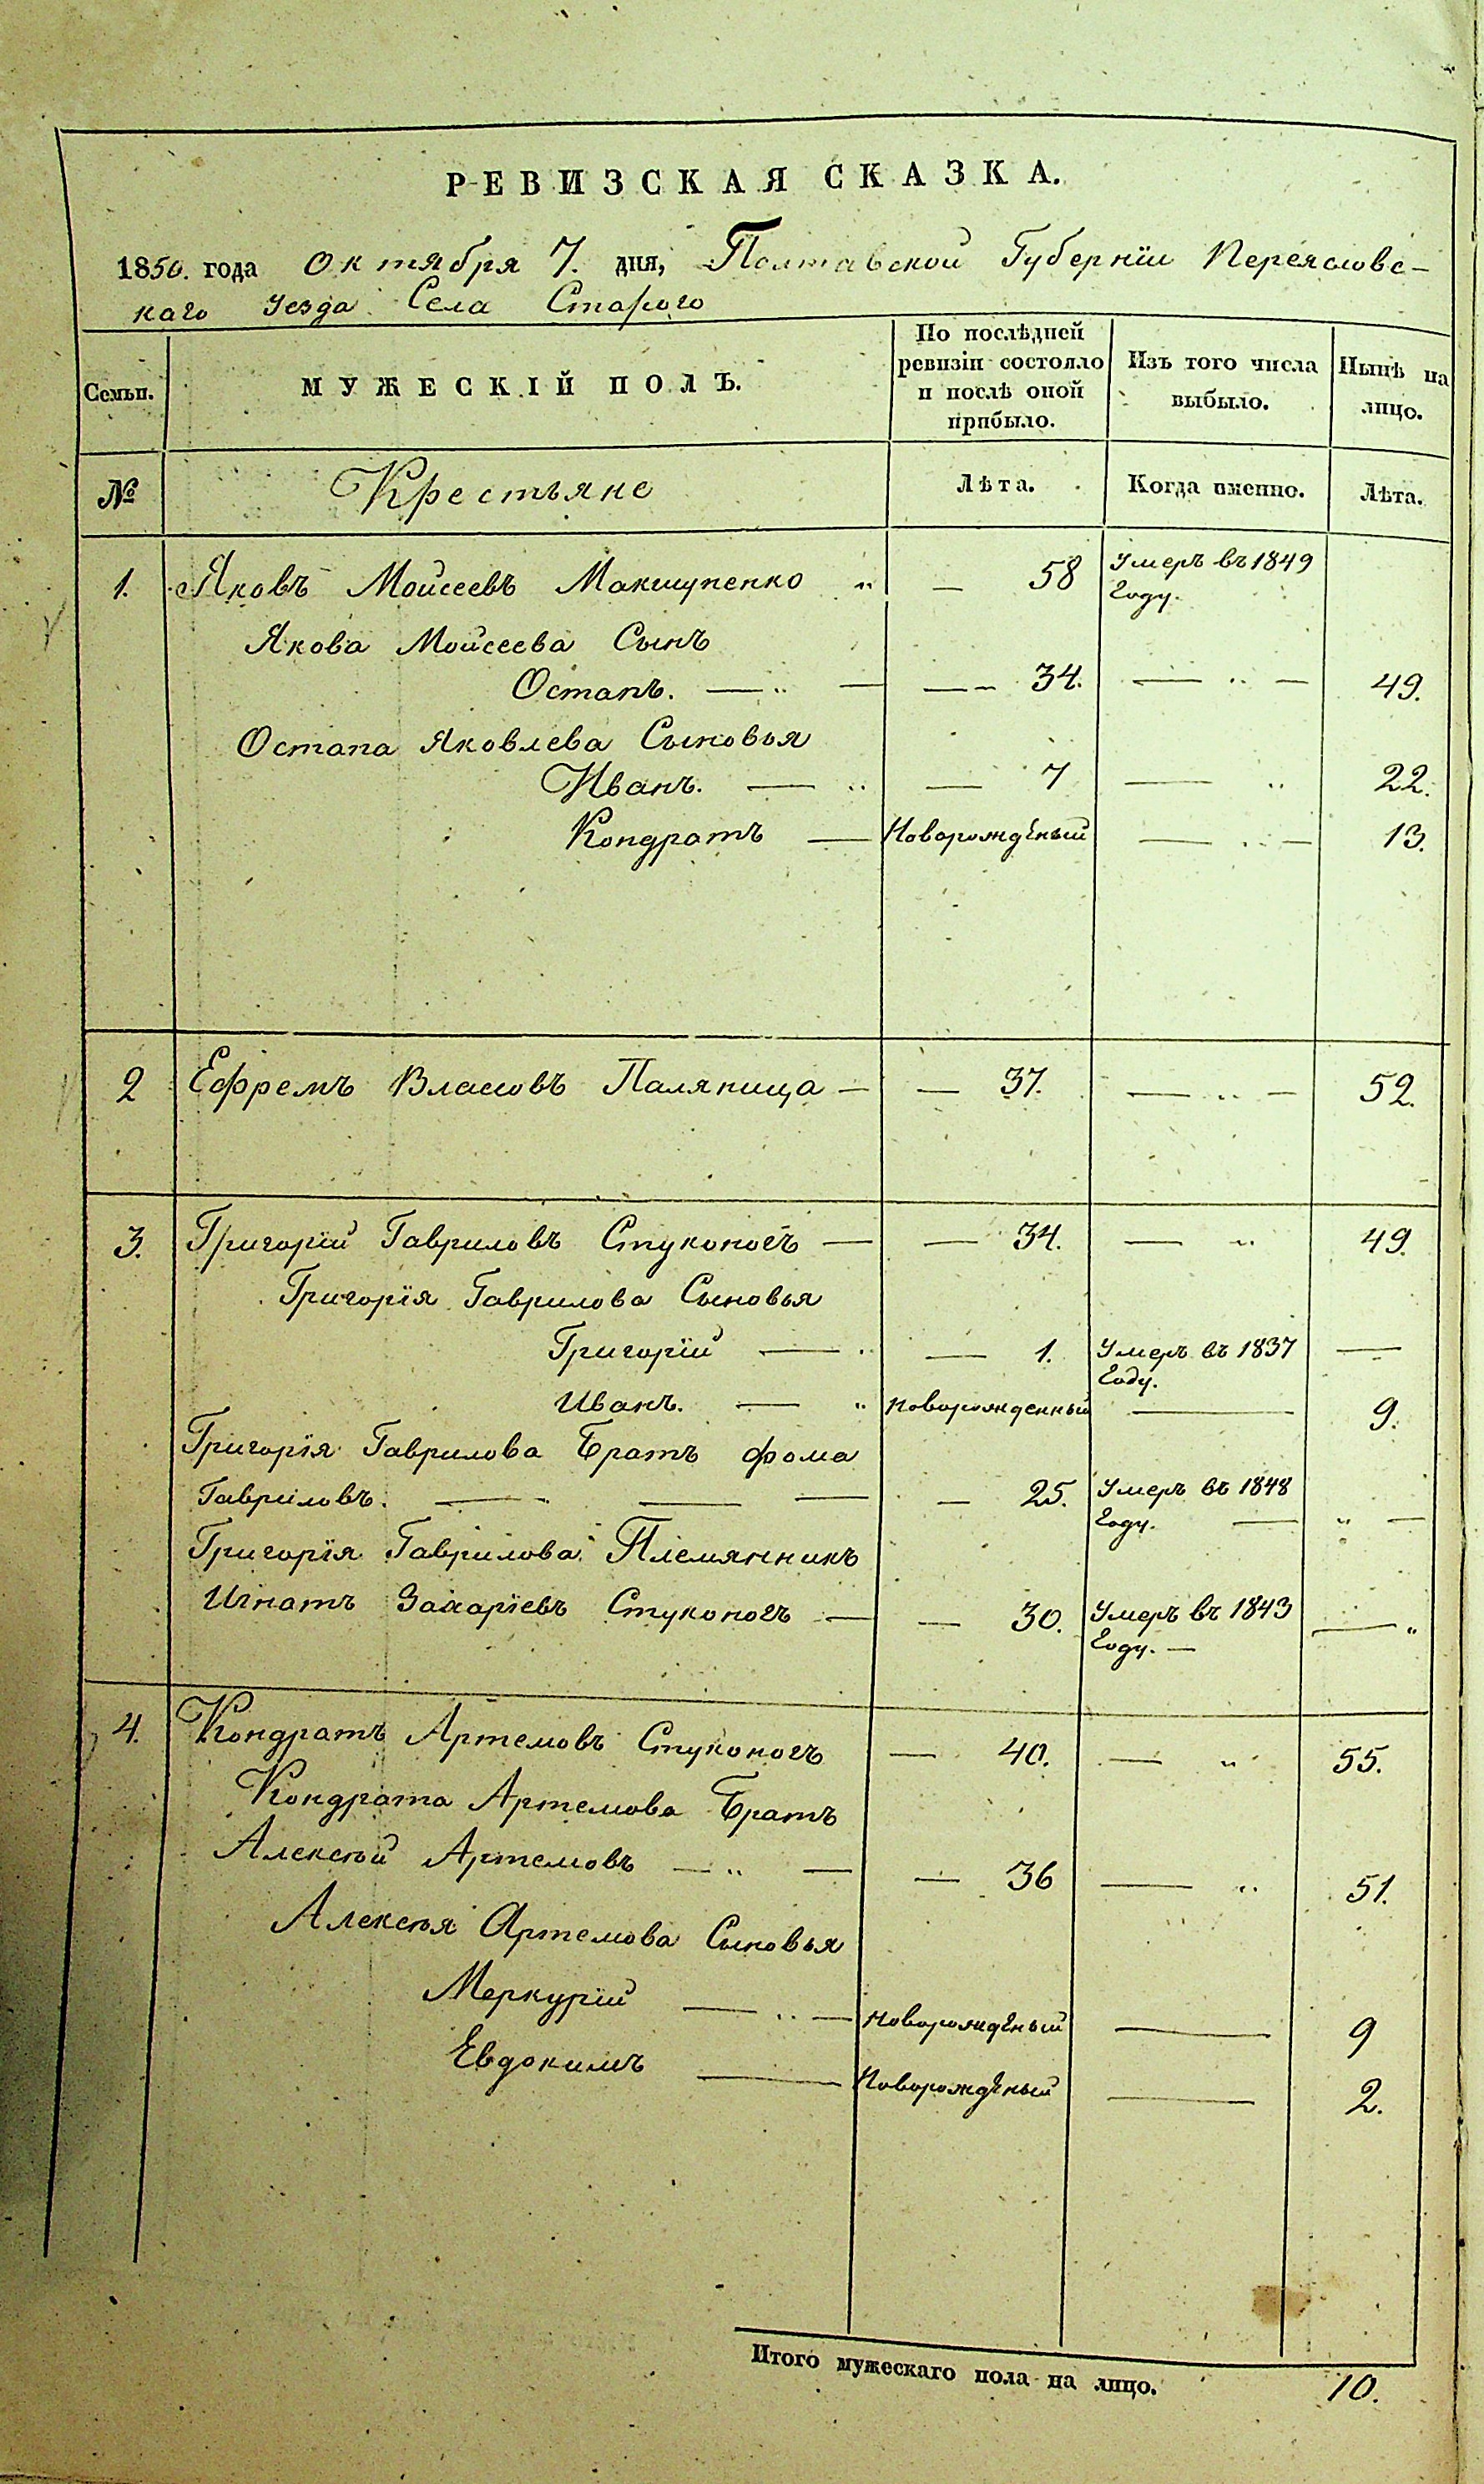 РЕВИЗСКАЯ СКАЗКА.
1850. года Октября 7. дня, Полтавской Губернїи Переяславс-
каго Уезда Села Старого
Семьи.
МУЖЕСКІЙ ПОЛЪ.
По послѣдней ревизіи состояло и послѣ оной прибыло.
Изъ того числа выбыло.
Нынѣ на лицо.
№ Крестьяне Лѣта. Когда именно. Лѣта.
1. Яковъ Моисеевъ Макшупенко „ — 58 Умеръ въ 1849
Году.
Якова Моисеева Сынъ
Остапъ. — „ — — 34. — „ — 49.
Остапа Яковлева Сыновья
Иванъ. — „ — 7 — „ 22.
Кондратъ — Новорожденый — „ — 13.
2 Ефремъ Власовъ Паляница — — 37. — „ — 52.
3. Григорїй Гавриловъ Стуконогъ — — 34. — „ 49.
Григорїя Гаврилова Сыновья
Григорїй — „ — 1. Умеръ въ 1837 —
Году.
Иванъ. — „ новорожденный — 9.
Григорїя Гаврилова Братъ Фома
Гавриловъ. — — — — 25. Умеръ въ 1848
Году. — „ —
Григорїя Гаврилова Племянникъ
Игнатъ Захарїевъ Стуконогъ — — 30. Умеръ въ 1843 — „
Году. —
4. Кондратъ Артемовъ Стуконогъ — 40. — „ 55.
Кондрата Артемова Братъ
Алексѣй Артемовъ — „ — — 36 — „ 51.
Алексѣя Артемова Сыновья
Меркурїй — „ — новорожденый — 9
Евдокимъ — Новорожденый — 2.
Итого мужескаго пола на лицо. 10.